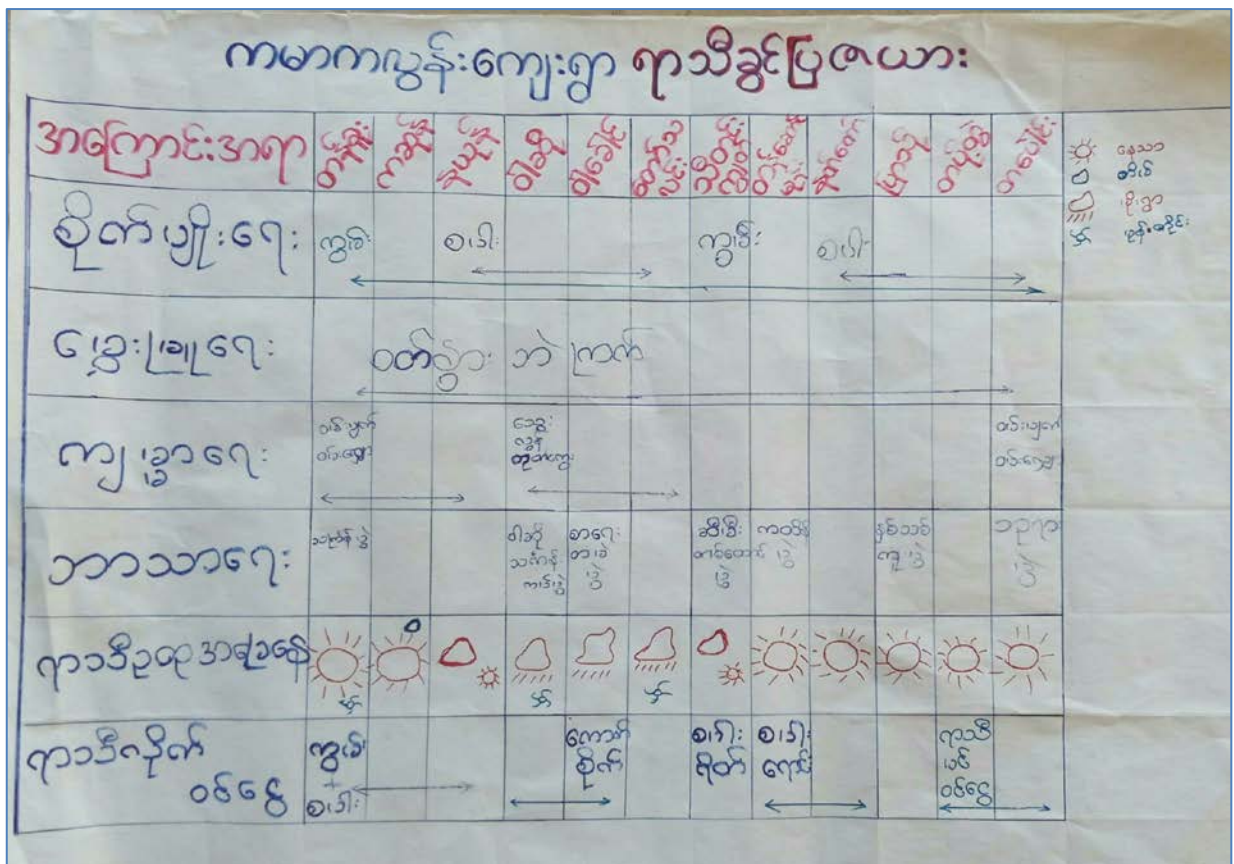 ကမာကလွန်းကျေးရွာ ရာသီခွင်ပြဇယား
အကြောင်းအရာ တန်ခူး ကဆုန် နယုန် ဝါဆို ဝါခေါင် တော်သလင်း သီတင်းကျွတ် တန်ဆောင်မုန်း နတ်တော် ပြာသို တပို့တွဲ တပေါင်း
နေသာ
တိမ်
မိုးရွာ
မုန်တိုင်း
စိုက်ပျိုးရေး ကွမ်း စပါး ကွမ်း စပါး
မွေးမြူရေး ဝတ် ဘဲ ကြက်
ကျန်းမာရေး ဝမ်းပျက် ဝမ်းလျှော သွေးလွန် တုတ်ကွေး ဝမ်းပျက် ဝမ်းလျှော
ဘာသာရေး သင်္ကြန်ပွဲ ဝါဆိုသင်္ကန်းကပ်ပွဲ စာရေးတံမဲပွဲ ဆီမီး ပွဲ ကထိန်ပွဲ နှစ်သစ်ကူးပွဲ ပွဲ
ရာသီဥတုအခြေနေ
ရာသီလိုက်ဝင်ငွေ ကွမ်း + စပါး ကောက်စိုက် စပါးရိတ် စပါးရောင်း ရာသီ ဝင်ငွေ